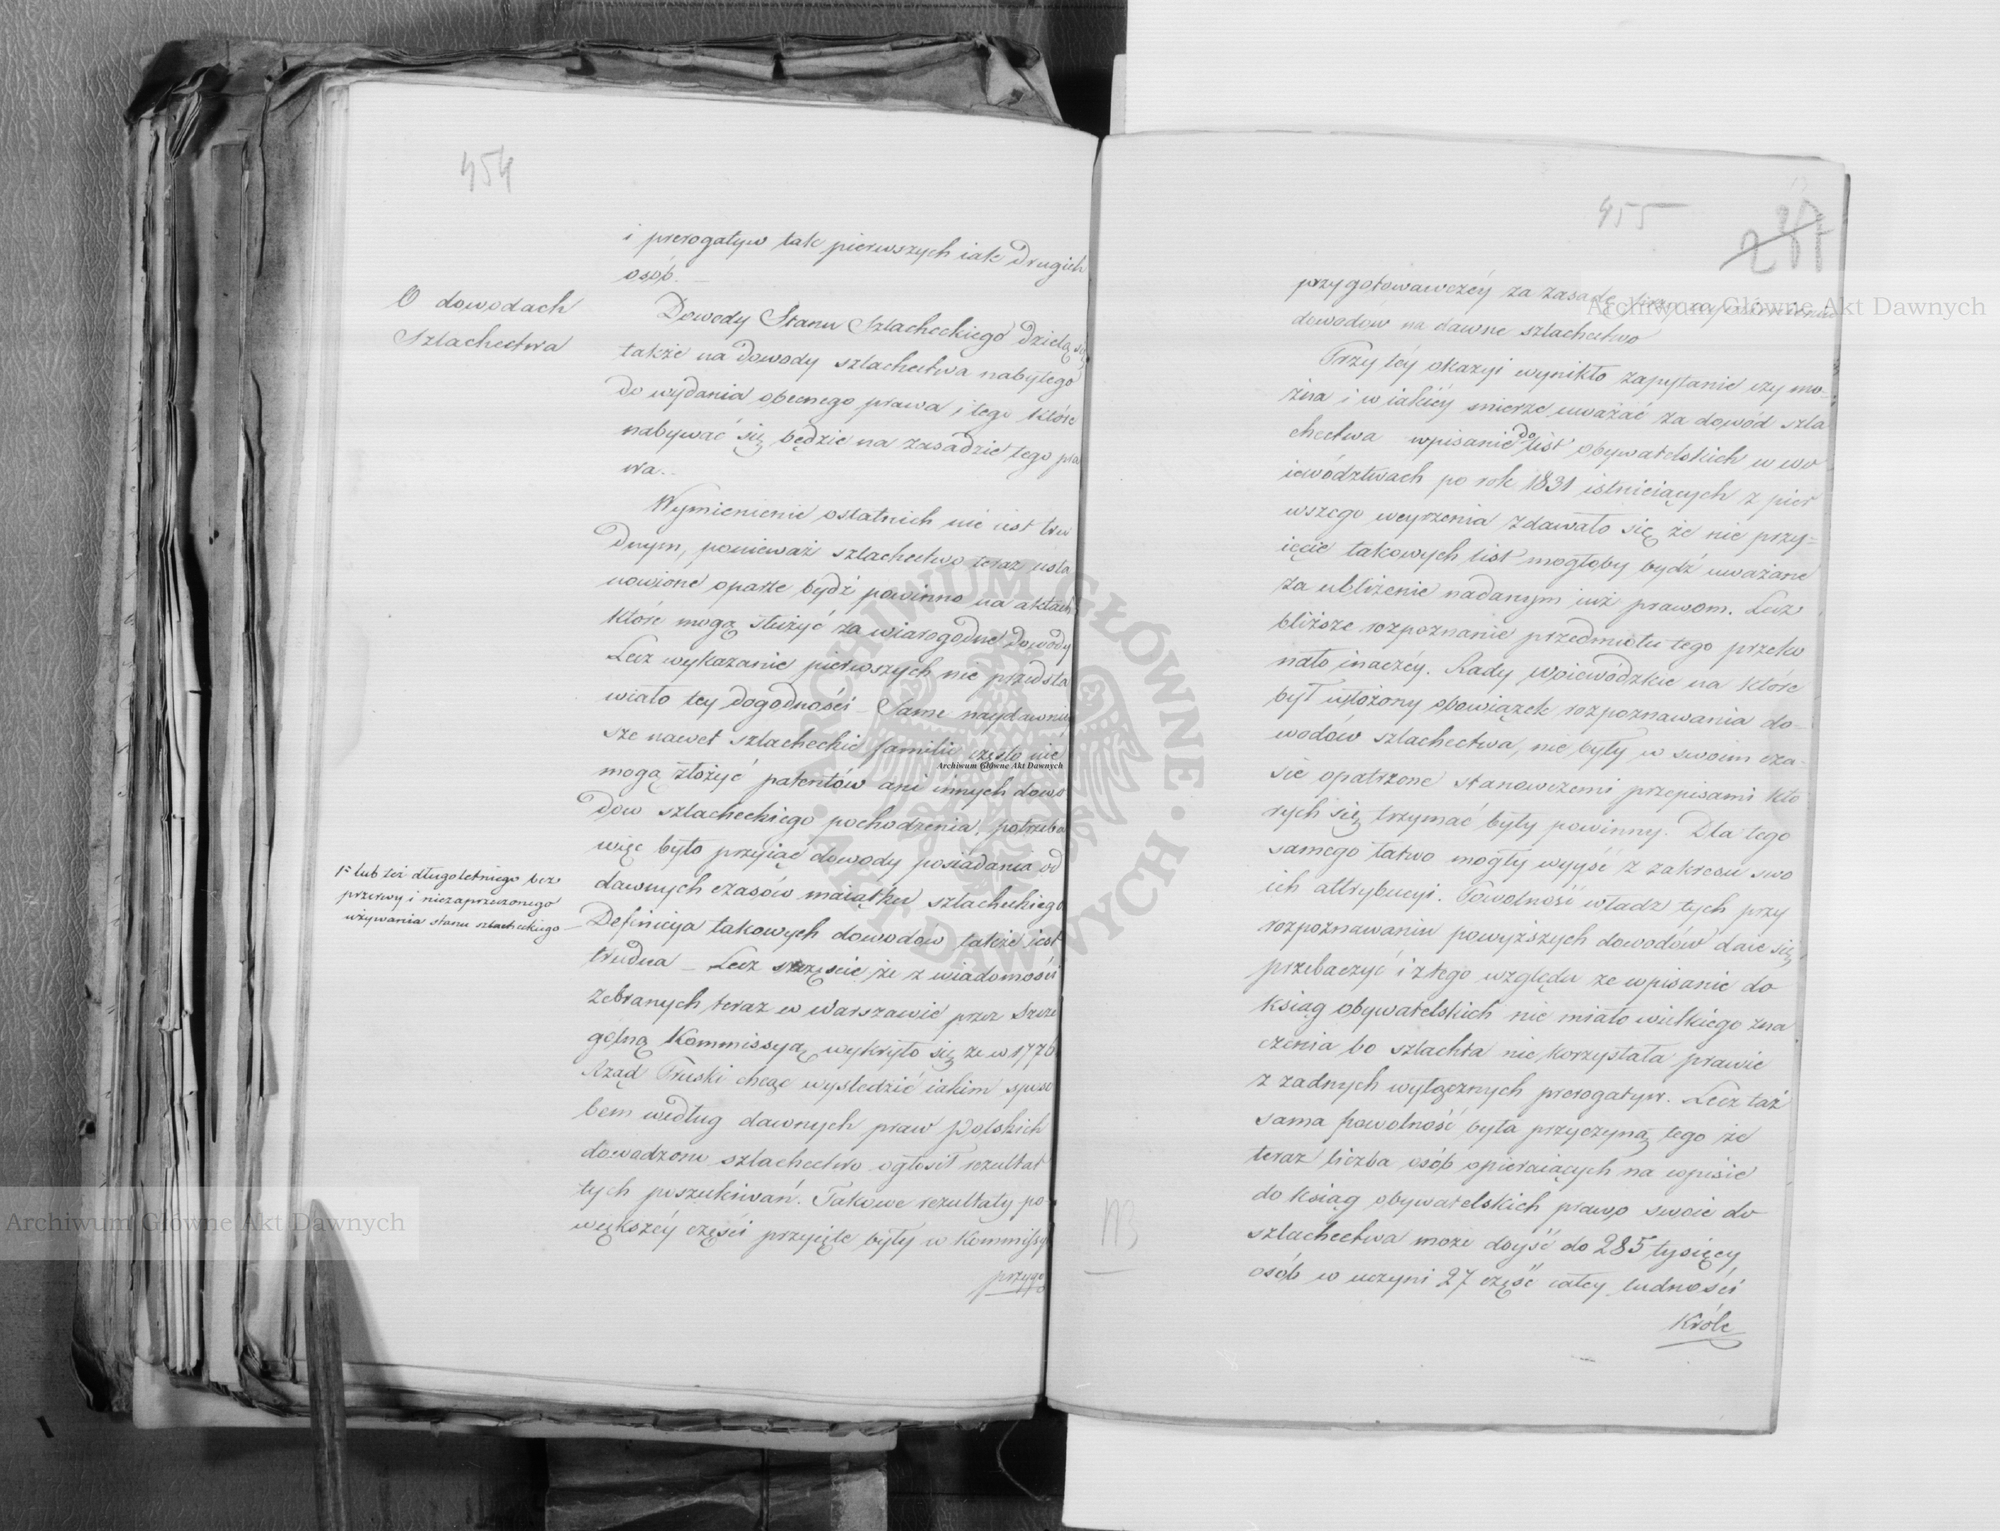 454
i prerogatyw tak pierwszych iak drugich
osób. —
O dowodach
Szlachectwa
Dowody Stanu Szlacheckiego dzielą się
także na dowody szlachectwa nabytego
do wydania obecnego prawa i tego które
nabywać się będzie na zasadzie tego pra
wa.
Wymienienie ostatnich nie iest tru
dnym, ponieważ szlachectwo teraz usta
nowione oparte bydź powinno na aktach
które mogą służyć za wiarogodne dowody
Lecz wykazanie pierwszych nie przedsta
wiało tey dogodności – Same naydawniey
sze nawet szlacheckie familie często nie
mogą złożyć patentów ani innych dowo
dow szlacheckiego pochodzenia, potrzeba
więc było przyiąć dowody posiadania od
dawnych czasów maiątku szlacheckiego
lub też długoletniego bez
przerwy i niezaprzeczonego
używania stanu szlacheckiego
Definicija takowych dowodow także jest
trudna – Lecz szczęście że z wiadomości
zebranych teraz w Warszawie przez szcze
gólną Kommissyą wykryło się że w 1776
Rząd Pruski chcąc wyśledzić iakim sposo
bem według dawnych praw Polskich
dowodzono szlachectwo ogłosił rezultat
tych poszukiwań. Takowe rezultaty po
większéy części przyięte były w Kommissyi
przygo
455
przygotowawczéy za zasadę
dowodów na dawne szlachectwo
Przy téy okazyi wynikło zapytanie czy mo-
żna i w iakiéy mierze uważać za dowód szla
chectwa wpisanie do list obywatelskich w wo
iewództwach po rok 1831 istnieiących z pier
wszego weyrzenia zdawało się że nie przy=
ięcie takowych list mogłoby bydź uważane
za ubliżenie nadanym iuż prawom. Lecz
bliższe rozpoznanie przedmiotu tego przeko
nało inaczéy. Rady Woiewódzkie na które
był włożony obowiązek rozpoznawania do-
wodów szlachectwa, nie były w swoim cza-
sie opatrzone stanowczemi przepisami któ
rych się trzymać były powinny. Dla tego
samego łatwo mogły wyyść z zakresu swo
ich attrybucyi. Powolność władz tych przy
rozpoznawaniu powyższych dowodów daie się
przebaczyć i z tego względu że wpisanie do
ksiąg obywatelskich nie miało wielkiego zna
czenia bo szlachta nie korzystała prawie
z żadnych wyłącznych prerogatyw. Lecz taż
sama powolność była przyczyną tego że
teraz liczba osób opieraiących na wpisie
do ksiąg obywatelskich prawo swoie do
szlachectwa może doyść do 285 tysięcy
osób co uczyni 27 część całey ludności
Króle
Archiwum Główne Akt Dawnych
Archiwum Główne Akt Dawnych
Archiwum Główne Akt Dawnych
ARCHIWUM GŁÓWNE AKT DAWNYCH